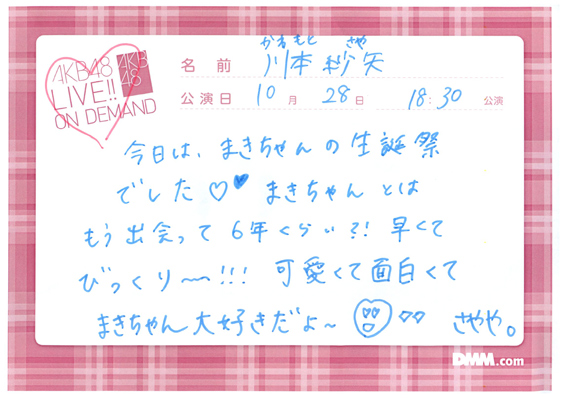 AKB48
LIVE!!
ON DEMAND
AKB
48
かわもと さや
名前 川本紗矢
公演日 10月 28日 18:30 公演
今日は、まきちゃんの生誕祭
でした♡♥ まきちゃんとは
もう出会って6年くらい?! 早くて
びっくり〜〜!!! 可愛くて面白くて
まきちゃん大好きだよ〜 さやや。
DMM.com